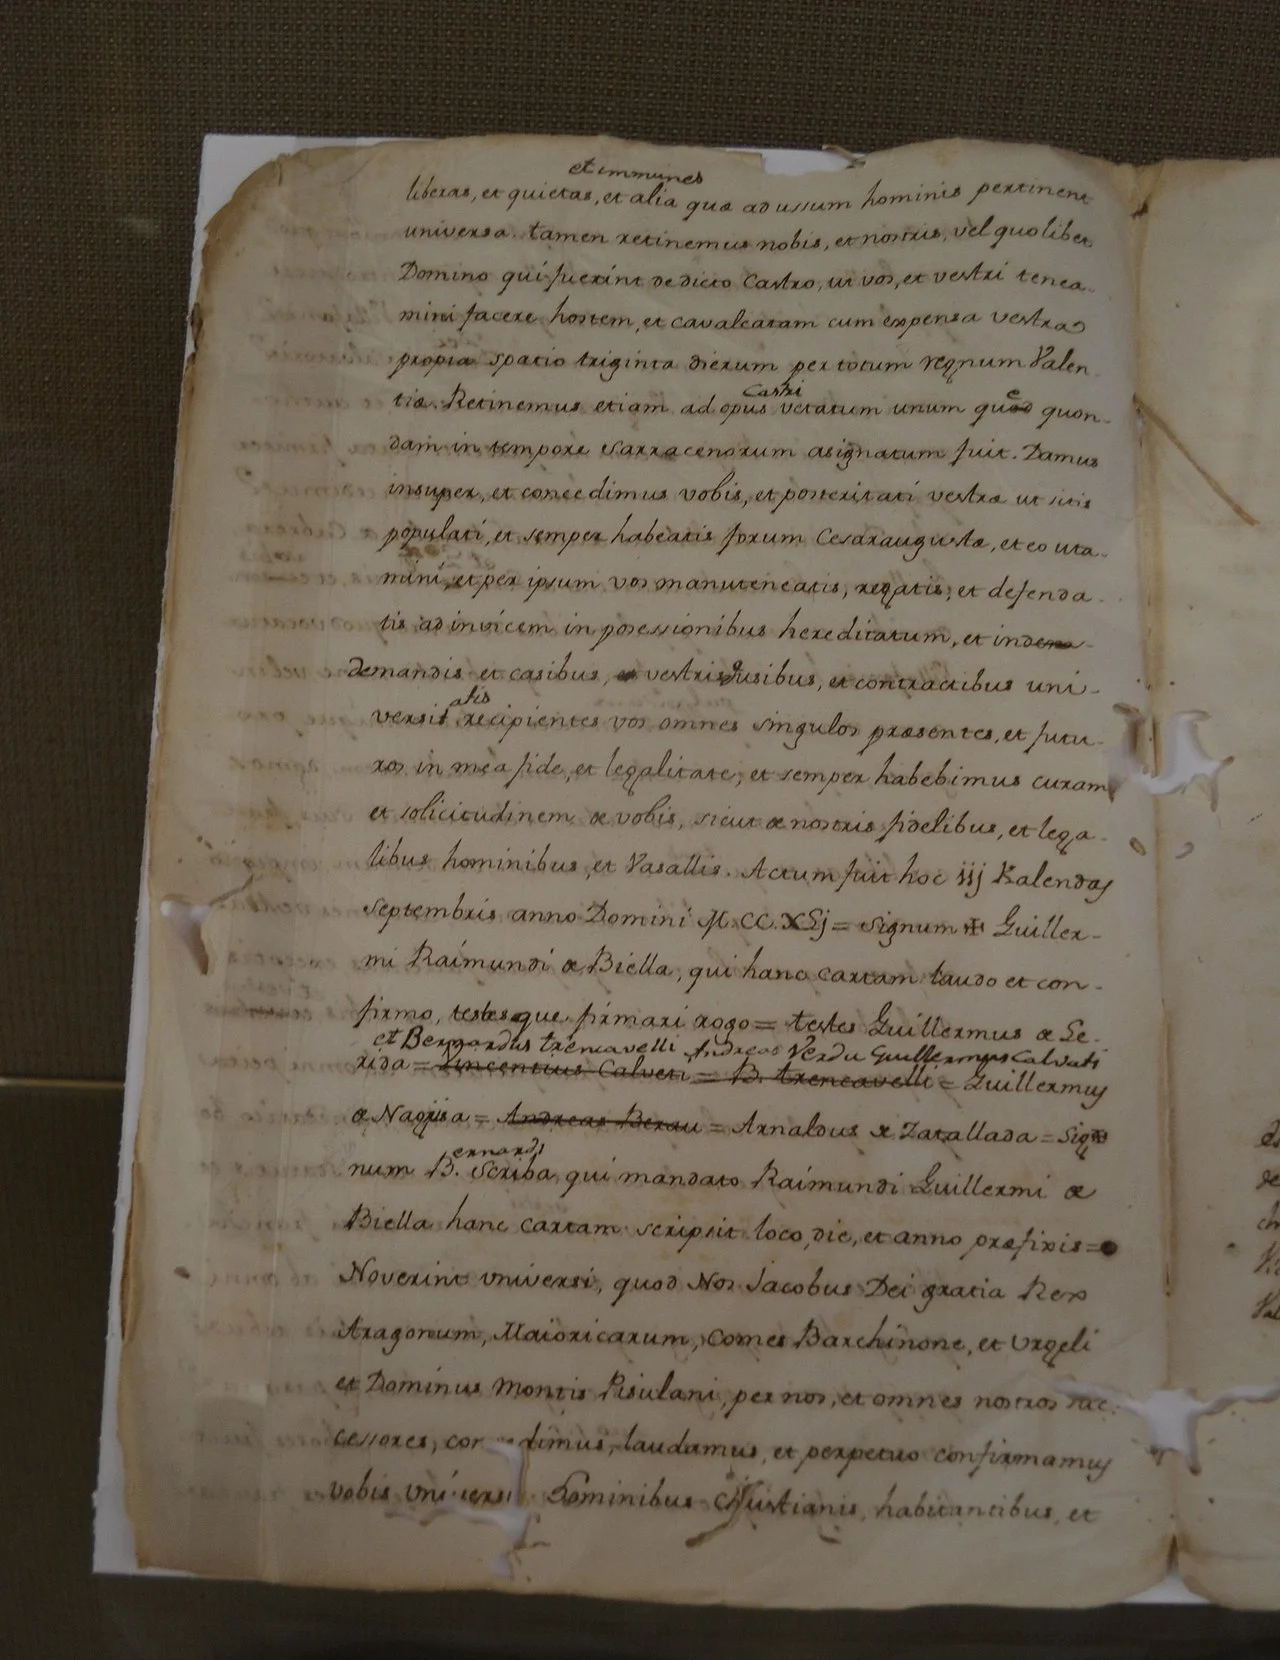 et immunes
liberas, et quietas, et alia quæ ad ussum hominis pertinent
universa. tamen retinemus nobis, et nostris, vel quolibet
Domino qui fuerint de dicto Castro, ut vos, et vestri tenea-
mini facere hostem, et cavalcatam cum expensa vestra
propia spatio triginta dierum per totum regnum Valen-
Castri
tiæ. Retinemus etiam ad opus vetatum unum quod quon-
dam in tempore sarracenorum asignatum fuit. Damus
insuper, et concedimus vobis, et posteritati vestræ ut sitis
populati, et semper habeatis forum Cesaraugustæ, et eo uta-
mini, et per ipsum vos manuteneatis, regatis, et defenda-
tis ad invicem in possessionibus hereditatum, et in
demandis et casibus, vestris usibus, et contractibus uni-
atis
versis recipientes vos omnes singulos præsentes, et futu-
ros in mea fide, et legalitate, et semper habebimus curam
et solicitudinem de vobis, sicut de nostris fidelibus, et lega-
libus hominibus, et Vasallis. Actum fuit hoc iij Kalendas
septembris anno Domini M.CC.XLj = signum ✠ Guiller-
mi Raimundi de Biella, qui hanc cartam laudo et con-
firmo, testesque firmari rogo = testes Guillermus de Le-
et Bernardus trencavelli Andreas Verdu Guillermus Calvati
rida = Vincentius Calveti = B. trencavelli = Guillermus
de Nagisa = Andreas Berau = Arnaldus de Zatallada = sig✠
ernardi
num B. Scriba, qui mandato Raimundi Guillermi de
Biella hanc cartam scripsit loco, die, et anno præfixis =
Noverint universi, quod Nos Jacobus Dei gratia Rex
Aragonum, Maioricarum, comes Barchinone, et Urgeli
et Dominus Montis Pisulani, per nos, et omnes nostros suc-
cessores, con edimus, laudamus, et perpetuo confirmamus
vobis universi hominibus Christianis, habitantibus, et